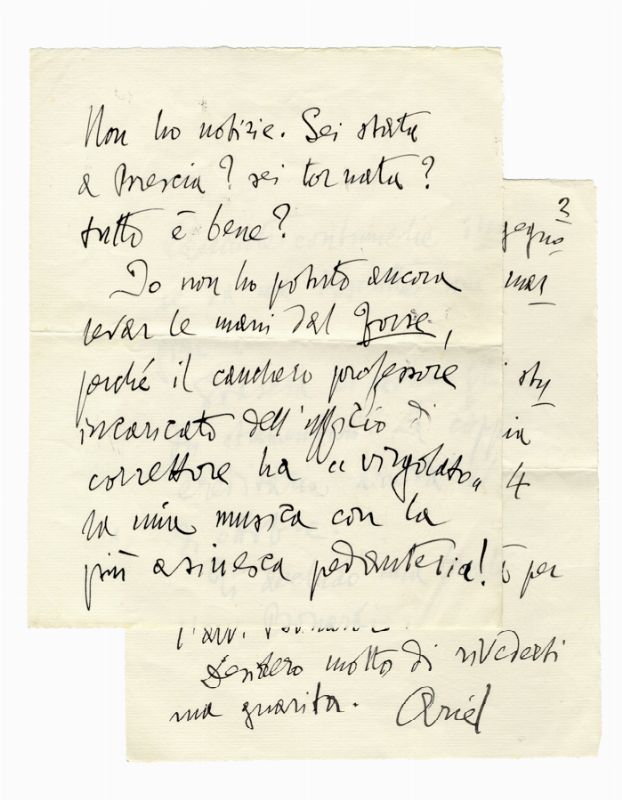 Non ho notizie. Sei stata
a Brescia? sei tornata?
tutto è bene?
Io non ho potuto ancora
levar le mani dal Forse,
perché il canchero professore
incaricato dell'ufficio di
correttore ha "virgolato"
la mia musica con la
più asinesca pedanteria!
per
Desidero molto di rivederti
ma guarita. Ariel